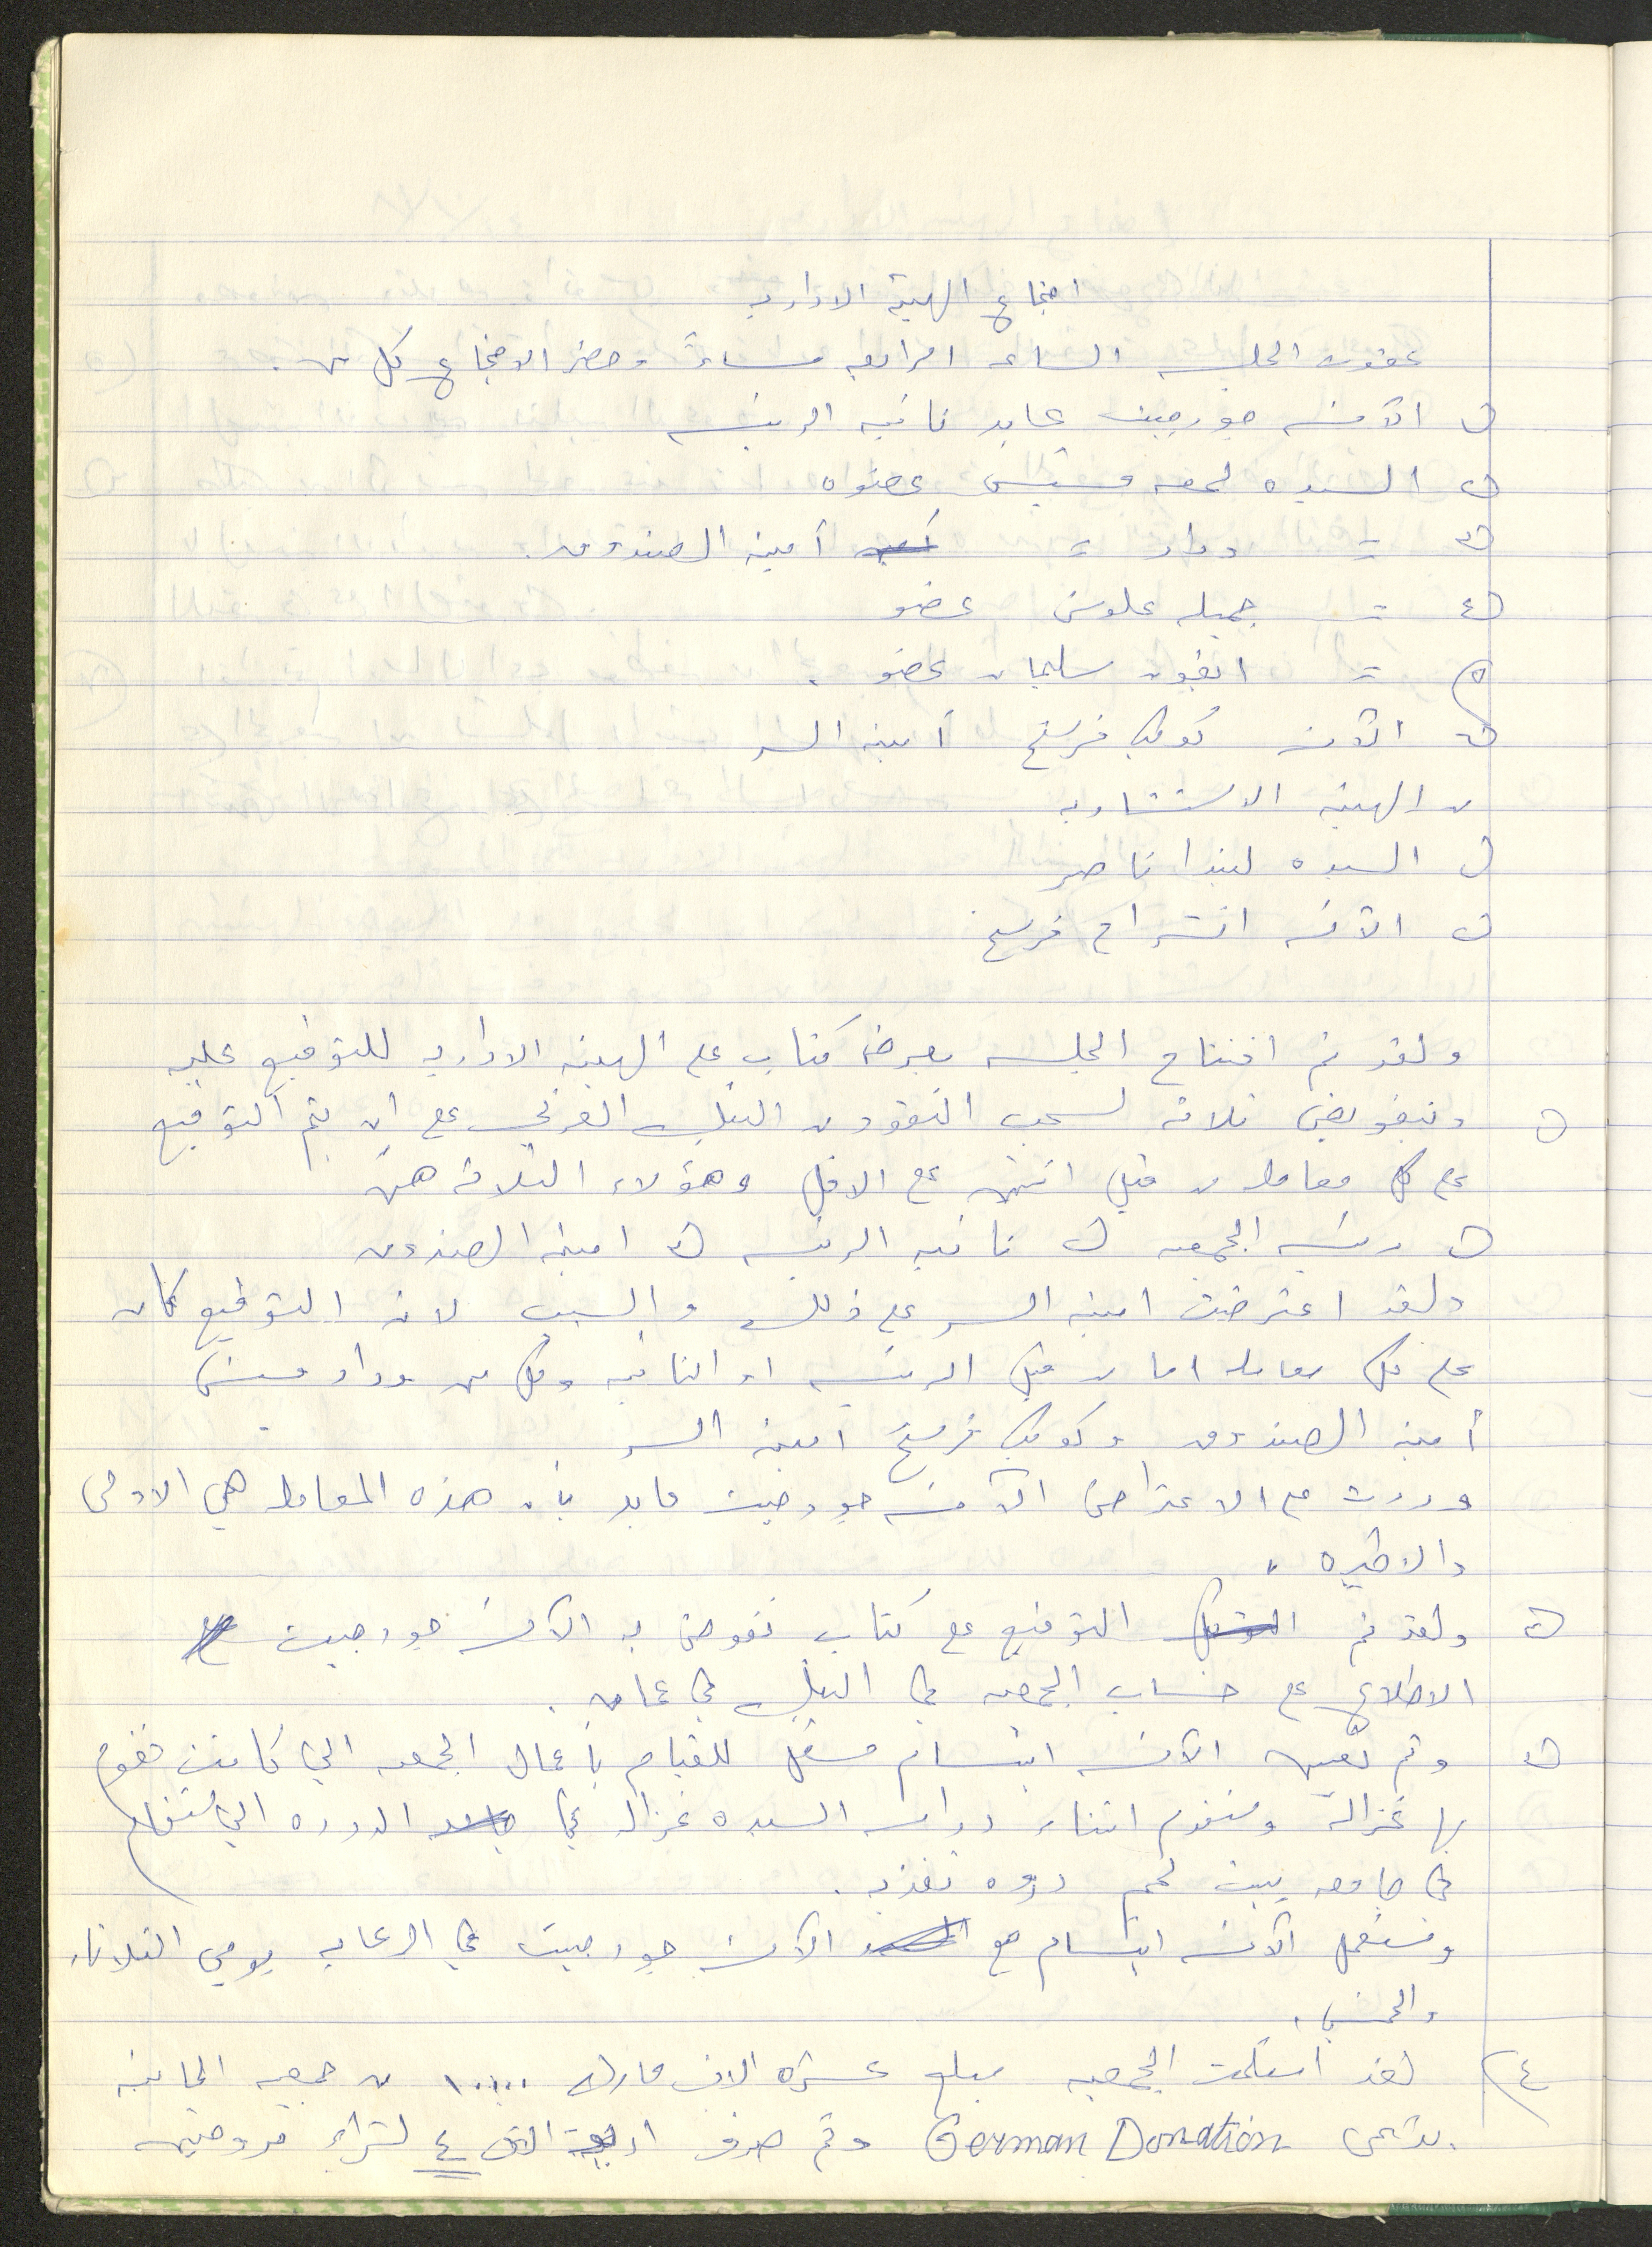 اجتماع الهيئة الادارية
عقدت الجلسه الساعه الرابعه مساءً وحضر الاجتماع كل من.
١) الآنسه جورجيت عابد نائبه الرئيسه
٢) السيده لمعه عضوا
٣) = وداد = أمينه الصندوق.
٤) = جميله علوش عضو
٥) = انجود سليمان عضو.
٦) الآنسه كوكب فرسخ أمينه السر
من الهيئه الاستشاريه
١) السيده ليندا ناصر
٢) الآنسه انشراح فرسخ
ولقد تم افتتاح الجلسه بعرض كتاب على الهيئه الاداريه للتوقيع عليه
١) وتفويض ثلاثه لسحب النقود من البنك العربي على ان يتم التوقيع
على كل معامله من قبل اثنتين على الاقل وهؤلاء الثلاثه هن
١) رئيسه الجمعيه ٢) نائبه الرئيسه ٣) امينه الصندوق
ولقد اعترضت امينه السر على ذلك والسبب لانه التوقيع كان
على كل معامله اما من قبل الرئيسه او النائبه وكل من وداد
أمينه الصندوق وكوكب فرسخ امينه السر
وردت على الاعتراض الآنسه جورجيت عابد بأن هذه المعامله هي الاولى
والاخيره.
٢) ولقد تم التوقيع على كتاب تفوض به الآنسه جورجيت
الاطلاع على حساب الجمعيه في البنك في عمان.
٣) وتم تعيين الآنسه ابتسام للقيام بأعمال الجمعيه التي كانت تقوم
بها غزاله وستقوم اثناء دراسه السيده غزاله في الدوره التي ستقام
في جامعه بيت لحم دوره تغذيه.
وستعمل الآنسه ابتسام مع الآنسه جورجيت في الرعايه يومي الثلاثاء
والخميس.
٤) لقد استلمت الجمعيه مبلغ عشره الاف مارك ١٠٠٠٠ من جمعيه المانيه
تدعى German Donation وتم صرف اربعة الاف ٤ لشراء